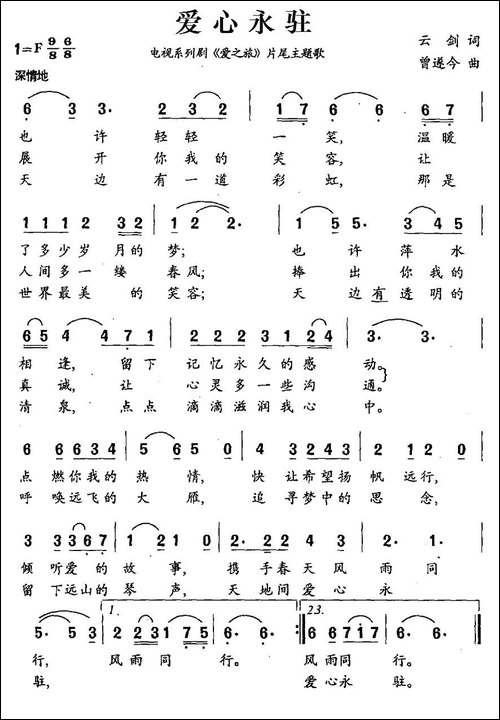 爱心永驻
1=F 9/8 6/8
电视系列剧《爱之旅》片尾主题歌
云剑 词
曾遂今 曲
深情地
6 3 3· 2 3 2 1 7 6 6 6 7
也许轻轻一笑，温暖
展开你我的笑容，让
天边有一道彩虹，那是
1 1 1 2 3 2 1 2 2· 1 5 5· 3 4 5
了多少岁月的梦；也许萍水
人间多一缕春风；捧出你我的
世界最美的笑容；天边有透明的
6 5 4 4 4 7 1 2 2 2 3 1 2 3· 3·
相逢，留下记忆永久的感动。
真诚，让心灵多一些沟通。
清泉，点点滴滴滋润我心中。
6 6 6 6 3 4 5 6 5 0 4 3 3 2 4 3 2 1 2 0
点燃你我的热情，快让希望扬帆远行，
呼唤远飞的大雁，追寻梦中的思念，
3 3 3 3 6 7 1 2 1 0 7 6 6 5 6 3 2· 1·
倾听爱的故事，携手春天风雨同
留下远山的琴声，天地间爱心永
5· 5 3 1. 2 2 2 3 1 7 5 6· 6 0 23. 6 6 6 7 1 7 6· 6·
行，风雨同行。风雨同行。
驻，爱心永驻。